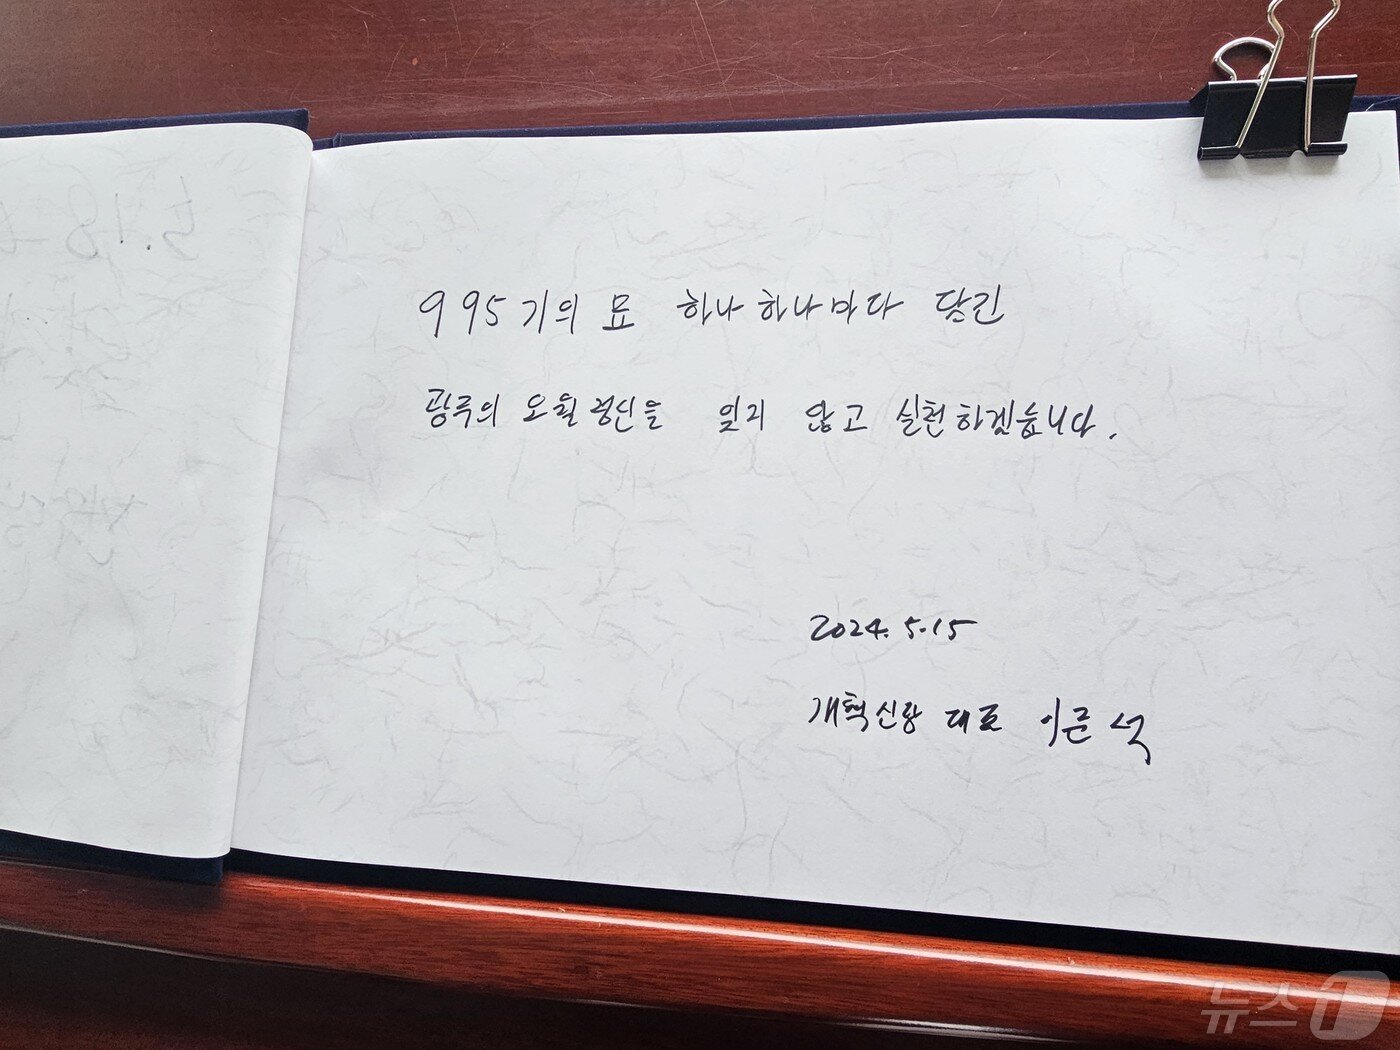 5.18
995기의 묘 하나하나마다 담긴
광주의 오월정신을 잊지 않고 실천하겠습니다.
2024. 5.15
개혁신당 대표 이준석
뉴스1